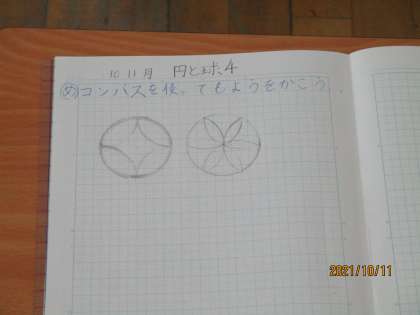 10 11月 円と球 4
め コンパスを使ってもようをかこう。
2021/10/11